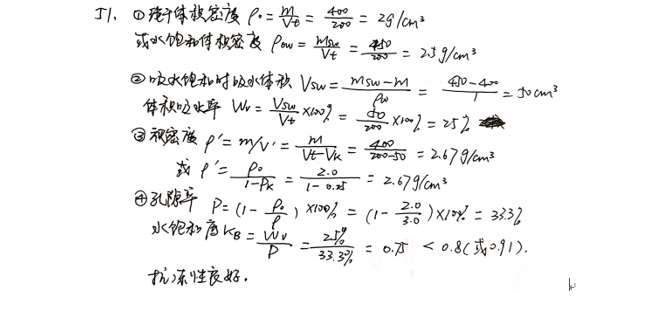 J1. ①绝干体积密度 ρ₀ = m/Vt = 400/200 = 2g/cm³
或水饱和体积密度 ρow = msw/Vt = 450/200 = 2.25g/cm³
②吸水饱和时吸水体积 Vsw = (msw-m)/ρw = (450-400)/1 = 50cm³
体积吸水率 Wv = Vsw/Vt ×100% = 50/200 ×100% = 25%
③视密度 ρ' = m/V' = m/(Vt-Vk) = 400/(200-50) = 2.67g/cm³
或 ρ' = ρ₀/(1-Pk) = 2.0/(1-0.25) = 2.67g/cm³
④孔隙率 P = (1 - ρ₀/ρ) ×100% = (1 - 2.0/3.0) ×10% = 33.3%
水饱和度 KB = Wv/P = 25%/33.3% = 0.75 < 0.8(或0.91).
抗冻性良好.